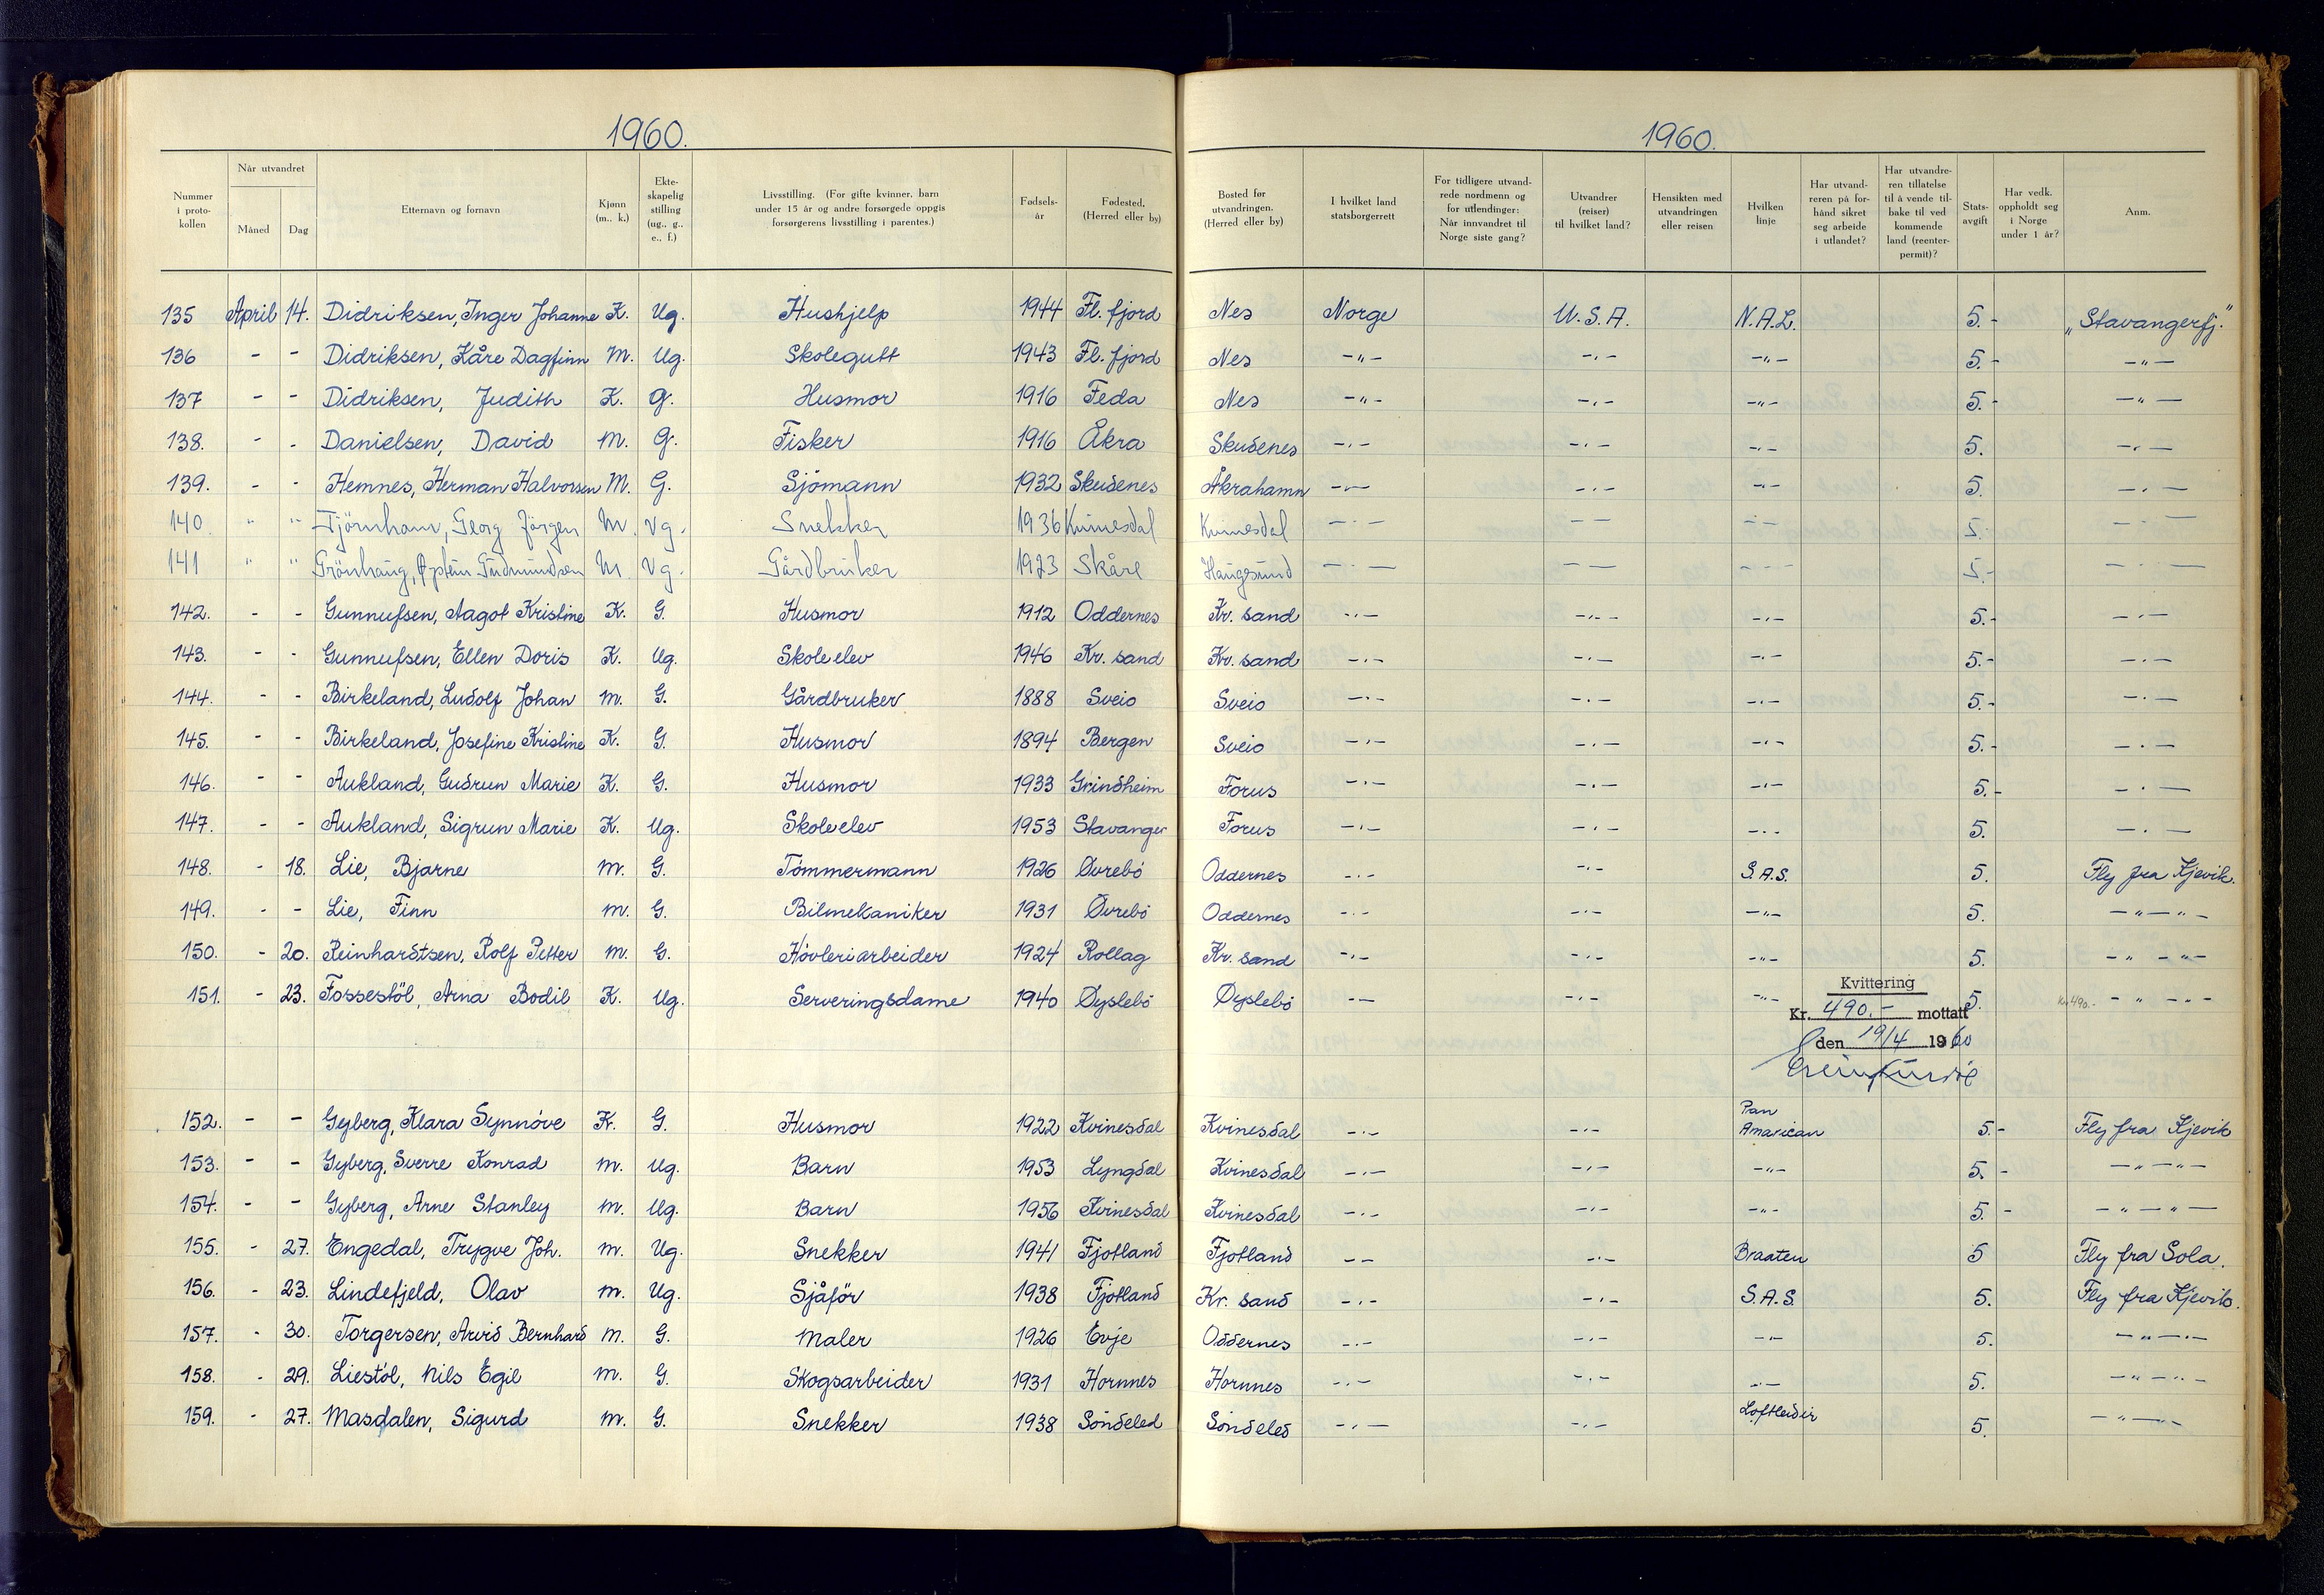 1960.
1960.
Nummer i proto- kollen
Når utvandret
Måned
Dag
Etternavn og fornavn
Kjønn (m., k.)
Ekte- skapelig stilling (ug., g., e., f.)
Livsstilling. (For gifte kvinner, barn under 15 år og andre forsørgede oppgis forsørgerens livsstilling i parentes.)
Fødsels- år
Fødested. (Herred eller by)
Bosted før utvandringen. (Herred eller by)
I hvilket land statsborgerrett
For tidligere utvand- rede nordmenn og for utlendinger: Når innvandret til Norge siste gang?
Utvandrer (reiser) til hvilket land?
Hensikten med utvandringen eller reisen
Hvilken linje
Har utvand- reren på for- hånd sikret seg arbeide i utlandet?
Har utvandre- ren tillatelse til å vende til- bake til ved kommende land (reenter- permit)?
Stats- avgift
Har vedk. oppholdt seg i Norge under 1 år?
Anm.
135 April 14. Didriksen, Inger Johanne K. Ug. Hushjelp 1944 Fl. fjord Nes Norge U.S.A. N.A.L. 5.- „Stavangerfj."
136 - - Didriksen, Kåre Dagfinn M. Ug. Skolegutt 1943 Fl. fjord Nes -"- -"- -"- 5.- -"-
137 - - Didriksen, Judith K. G. Husmor 1916 Feda Nes -"- -"- -"- 5.- -"-
138. - - Danielsen, David M. G. Fisker 1916 Åkra Skudenes -"- -"- -"- 5. -"-
139. - - Hemnes, Herman Halvorsen M. G. Sjömann 1932 Skudenes Åkrahamn -"- -"- -"- 5. -"-
140 " " Tjörnhom, Georg Jörgen M. Ug. Snekker 1936 Kvinesdal Kvinesdal -"- -"- -"- 5.- -"-
141 " " Grönhaug, Öystein Gudmundsen M. Ug. Gårdbruker 1923 Skåre Haugesund -"- -"- -"- 5.- -"-
142. - - Gunnufsen, Aagot Kristine K. G. Husmor 1912 Oddernes Kr. sand -"- -"- -"- 5.- -"-
143. - - Gunnufsen, Ellen Doris K. Ug. Skoleelev 1946 Kr. sand Kr. sand -"- -"- -"- 5.- -"-
144. - - Birkeland, Ludolf Johan M. G. Gårdbruker 1888 Sveio Sveio -"- -"- -"- 5.- -"-
145. - - Birkeland, Josefine Kristine K. G. Husmor 1894 Bergen Sveio -"- -"- -"- 5.- -"-
146. - - Aukland, Gudrun Marie K. G. Husmor 1933 Grindheim Forus -"- -"- -"- 5.- -"-
147. - - Aukland, Sigrun Marie K. Ug. Skoleelev 1953 Stavanger Forus -"- -"- -"- 5. -"-
148. - 18. Lie, Bjarne M. G. Tömmermann 1926 Øvrebö Oddernes -"- -"- S.A.S. 5. Fly fra Kjevik.
149. - - Lie, Finn M. G. Bilmekaniker 1931 Øvrebö Oddernes -"- -"- -"- 5. -"-"-
150. - 20. Reinhardtsen, Rolf Petter M. G. Hövleriarbeider 1924 Rollag Kr. sand -"- -"- -"- 5. -"-"-
151. - 23. Fossestöl, Arna Bodil K. Ug. Serveringsdame 1940 Øyslebö Øyslebö -"- -"- -"- 5. Kr. 490.- -"-"-
Kvittering
Kr. 490.- mottatt
den 19/4 1960
152. - - Gyberg, Klara Synnöve K. G. Husmor 1922 Kvinesdal Kvinesdal -"- -"- Pan American 5.- Fly fra Kjevik
153. - - Gyberg, Sverre Konrad M. Ug. Barn 1953 Lyngdal Kvinesdal -"- -"- -"- 5.- -"-"-
154. - - Gyberg, Arne Stanley M. Ug. Barn 1956 Kvinesdal Kvinesdal -"- -"- -"- 5.- -"-"-
155. - 27. Engedal, Trygve Joh. M. Ug. Snekker 1941 Fjotland Fjotland -"- -"- Braaten 5 Fly fra Sola.
156. - 23. Lindefjeld, Olav M. Ug. Sjåför 1938 Fjotland Kr. sand -"- -"- S.A.S. 5. Fly fra Kjevik.
157. - 30. Torgersen, Arvid Bernhard M. G. Maler 1926 Evje Oddernes -"- -"- -"- 5. -"-"-
158. - 29. Liestöl, Nils Egil M. G. Skogsarbeider 1931 Hornnes Hornnes -"- -"- -"- 5. -"-"-
159. - 27. Masdalen, Sigurd M. G. Snekker 1938 Söndeled Söndeled -"- -"- Loftleidir 5. -"-"-